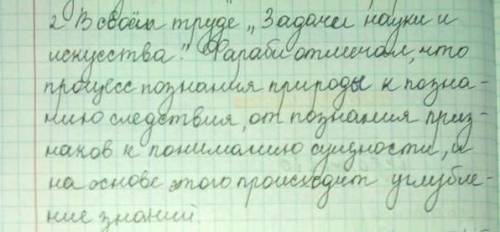 2 В своём труде „Задачи науки и
искусства." Фараби отмечал, что
процесс познания природы к позна-
нию следствия, от познания приз-
наков к пониманию сущности, и
на основе этого происходит углубле-
ние знаний.